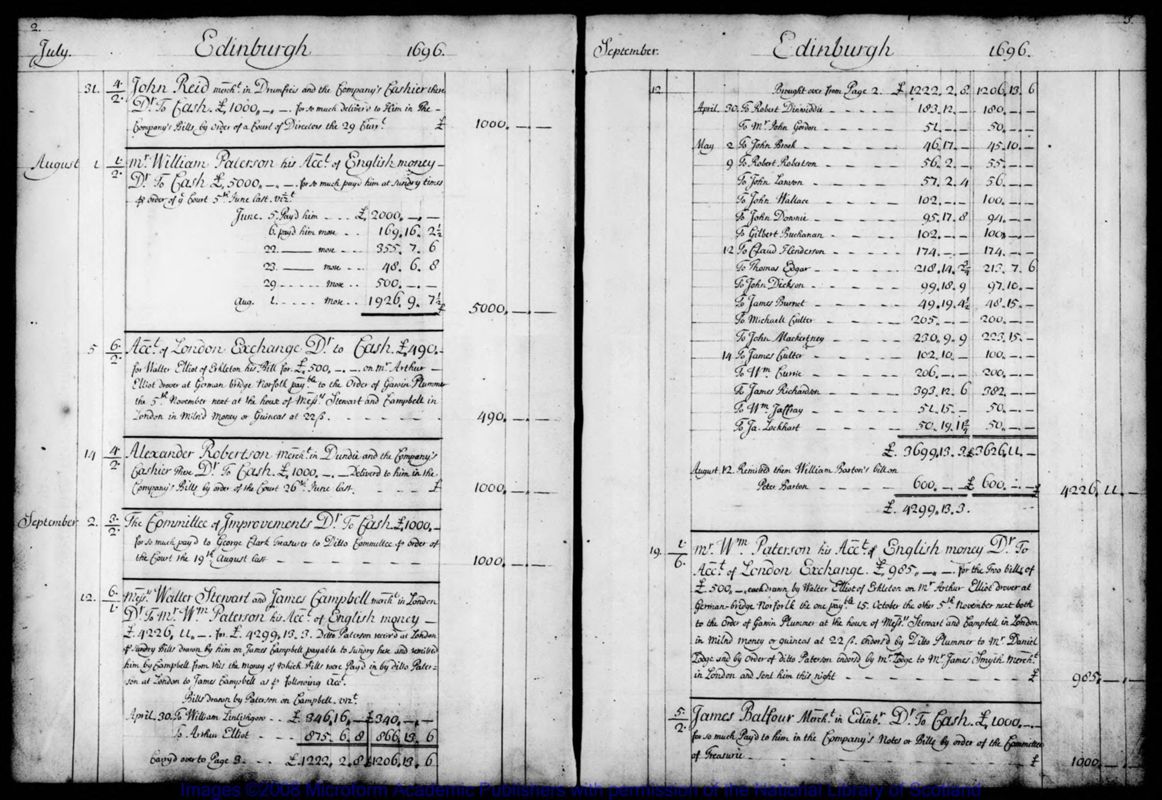 2.
July. Edinburgh 1696.
31. 4/2. John Reid mercht. in Drumfreis and the Company's Cashier there
Dr. To Cash £1000,—,— for so much deliverd to Him in the
Company's Bills by order of a Court of Directors the 29 Curt. £ 1000,—,—
August 1. 1/2. Mr. William Paterson his Acct. of English money
Dr. To Cash £5000,—,— for so much payd him at sundry times
order of ye Court 5th June last. vizt.
June. 5. Payd him £ 2000,—,—
6. payd him more 169. 16. 2½
22. —— more 355. 7. 6
23. —— more 48. 6. 8
29. —— more 500,—,—
Aug. 1. —— more 1926. 9. 7½
£ 5000,—,—
5 6/2. Acct. of London Exchange Dr. to Cash £490,—
for Walter Elliot of Erkleton his Bill for £500,—,— on Mr. Arthur
Elliot drover at German bridge Norfolk payble to the Order of Gawin Plummer
the 5th November next at the house of Messrs Stewart and Campbell in
London in Miln'd Money or Guineas at 22ß. 490,—,—
14 4/2. Alexander Robertson mercht. in Dundie and the Company's
Cashier there Dr. To Cash £1000,—,— Deliverd to him in the
Company's Bills by order of the Court 26th June last £ 1000,—,—
September 2. 3/2. The Committee of Improvements Dr. To Cash £1000,—
for so much pay'd to George Clark Treasurer to Ditto Committee order of
the Court the 19th August last 1000,—,—
12. 6/1. Messrs. Walter Stewart and James Campbell mercht. in London
Dr. To Mr. Wm. Paterson his Acct. of English money
£4226, 11,—. for £4299, 13. 3. Ditto Paterson receiv'd at London
sundry Bills drawn by him on James Campbell payable to sundry here and remitted
him by Campbell from this the money of which Bills were Payd in by ditto Pater=
son at London to James Campbell as following Acct.
Bills drawn by Paterson on Campbell, vizt.
April. 30. To William Linlithgow £346, 16,— £340,—,—
To Arthur Elliot 875. 6. 8 866, 13. 6
Carry'd over to Page 3. £1222, 2. 8 £1206, 13. 6
3.
September. Edinburgh 1696.
12 Brought over from Page 2. £ 1222. 2. 8 1206. 13. 6
April. 30. To Robert Dinwiddie 183. 12. 180.—
To Mr. John Gordon 51.—— 50.—
May 2 To John Brock 46. 17.— 45. 10.—
9 To Robert Robertson 56. 2.— 55.——
To John Lawson 57. 2. 4 56.——
To John Wallace 102.—— 100.——
To John Downie 95. 17. 8 94.——
To Gilbert Buchanan 102.—— 100.——
12 To Claud Henderson 174.—— 174.——
To Thomas Edgar 218. 14. 213. 7. 6
To John Dickson 99. 18. 9 97. 10.
To James Burnet 49. 19. 4½ 48. 15.—
To Michaell Culter 205.—— 200.——
To John Mackertney 230. 9. 9 223. 15.—
14 To James Culter 102. 10. 100.——
To Wm. Currie 206.—— 200.——
To James Richardson 393. 12. 6 382.——
To Wm. Jaffray 51. 15.— 50.——
To Ja. Lockhart 50. 19. 50.——
£. 3699, 13. 3 £3626, 11.—
August. 12. Remitted them William Barton's bill on
Peter Barton 600.—— £ 600.—— £ 4226, 11.—
£. 4299. 13. 3.
19. 1/6. Mr. Wm. Paterson his Acct. of English money Dr. To
Acct. of London Exchange. £985,—,— for the two bills of
£500,—, each drawn by Walter Elliot of Erkleton on Mr. Arthur Elliot drover at
German-bridge Norfolk the one payble 15. October the other 5th November next both
to the Order of Gawin Plummer at the house of Messrs. Stewart and Campbell in London
in Miln'd money or guineas at 22ß. endors'd by Ditto Plummer to Mr. Daniel
Lodge and by Order of ditto Paterson endors'd by Mr. Lodge to Mr. James Smyth Mercht.
in London and sent him this night £ 985.——
5/2. James Balfour Mercht. in Edinbr. Dr. To Cash £1000,—
for so much Pay'd to him in the Company's Notes or Bills by order of the Committee
of Treasurie £ 1000,—
Images ©2008 Microform Academic Publishers with permission of the National Library of Scotland